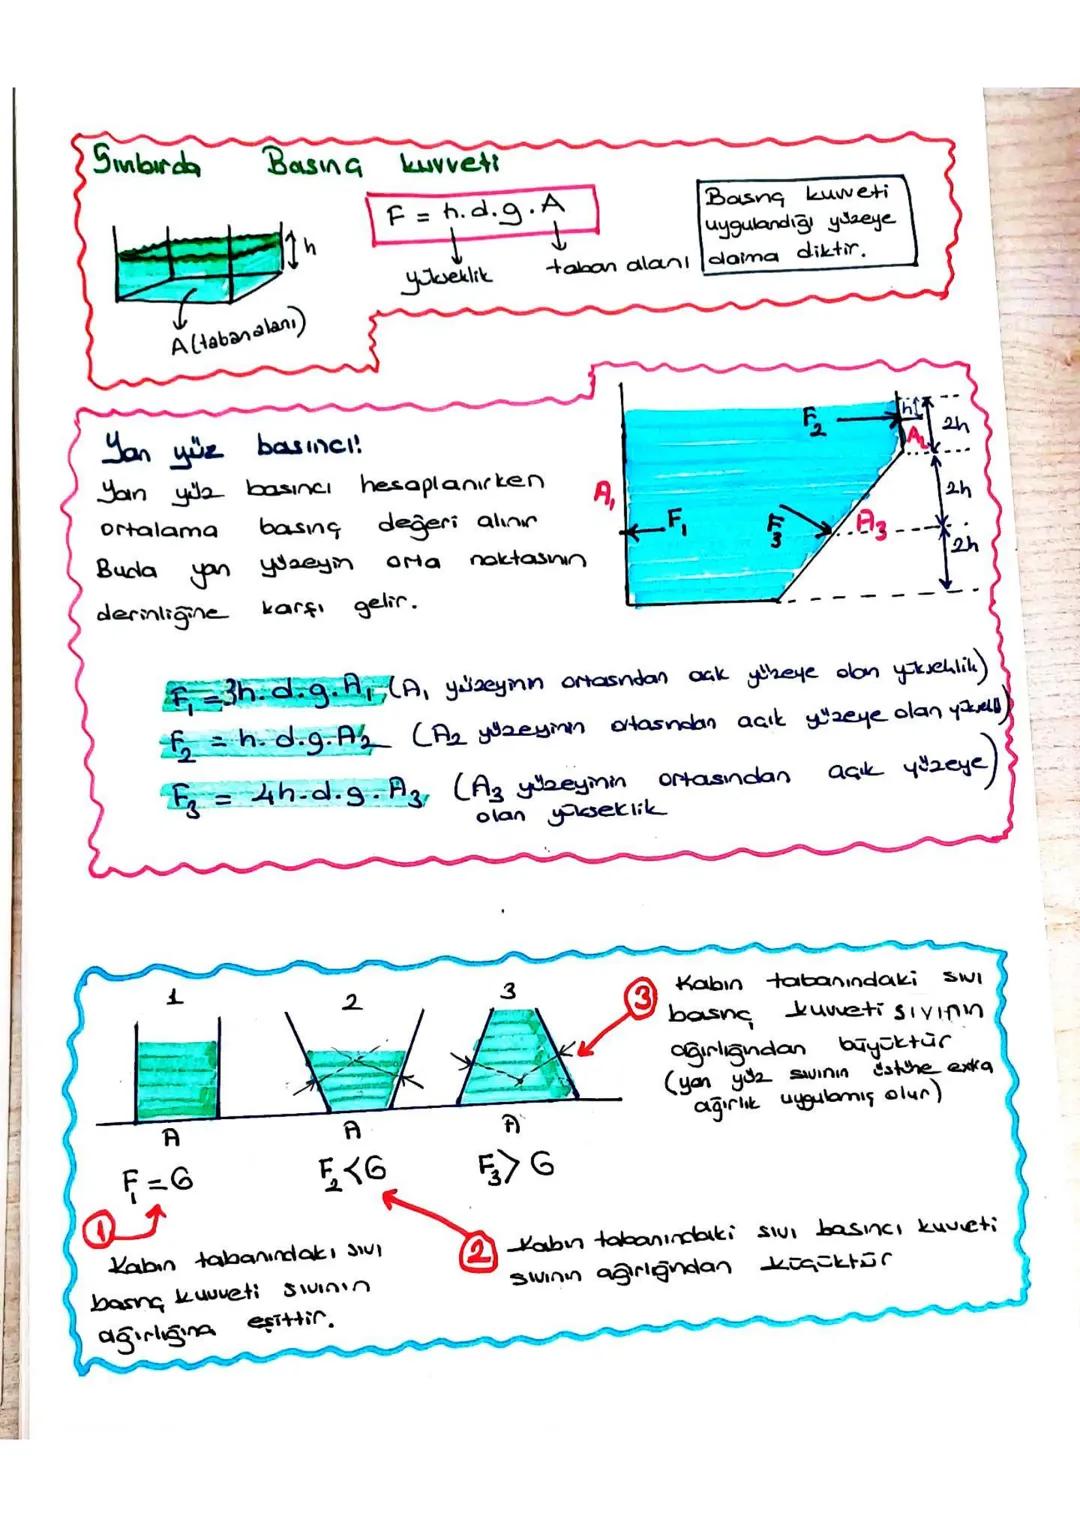 Sıvılarda Basınç kuvveti
F = h.d.g.A
yükseklik
taban alanı
h
A(taban alanı)
Basınç kuvveti
uygulandığı yüzeye
daima diktir.
Yan yüz basıncı!
Yan yüz basıncı hesaplanırken
ortalama basınç değeri alınır
Buda yan yüzeyin orta noktasının
derinliğine karşı gelir.
A₁
F₁
F₂
F₃
h
A₂
A₃
2h
2h
2h
F₁ = 3h.d.g.A₁ (A₁ yüzeyinin ortasından açık yüzeye olan yükseklik)
F₂ = h.d.g.A₂ (A₂ yüzeyinin ortasından açık yüzeye olan yükseklik)
F₃ = 4h.d.g.A₃ (A₃ yüzeyinin ortasından açık yüzeye)
olan yükseklik
1
2
3
A
A
A
F₁ = G
F₂ < G
F₃ > G
3
Kabın tabanındaki sıvı
basınç kuvveti sıvının
ağırlığından büyüktür
(yan yüz sıvının üstüne extra
ağırlık uygulamış olur)
1
Kabın tabanındaki sıvı
basınç kuvveti sıvının
ağırlığına eşittir.
2
Kabın tabanındaki sıvı basıncı kuvveti
sıvının ağırlığından küçüktür